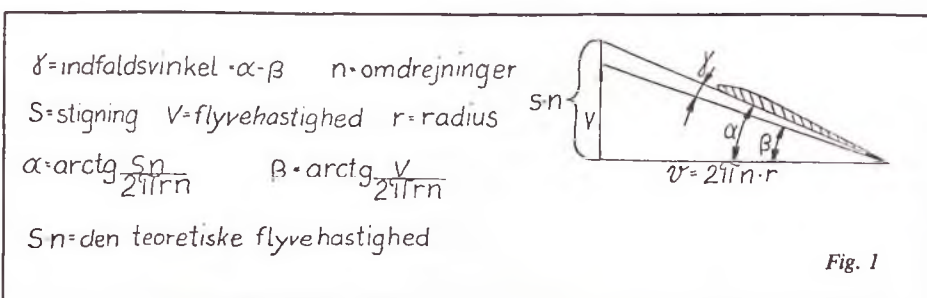 γ=indfaldsvinkel=α-β n=omdrejninger
S=stigning V=flyvehastighed r=radius
α=arctg Sn/2πrn β=arctg V/2πrn
Sn=den teoretiske flyvehastighed
s·n
V
γ
α
β
v=2πn·r
Fig. 1